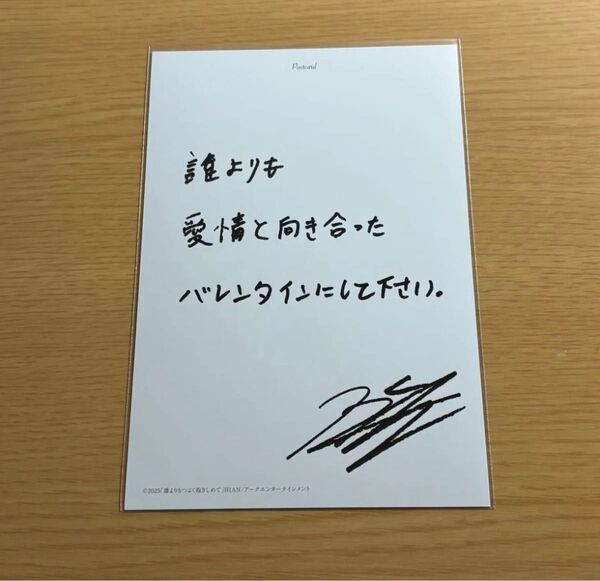 Postcard
誰よりも
愛情と向き合った
バレンタインにして下さい。
©2025「誰よりもつよく抱きしめて」HIAN/アークエンタテインメント